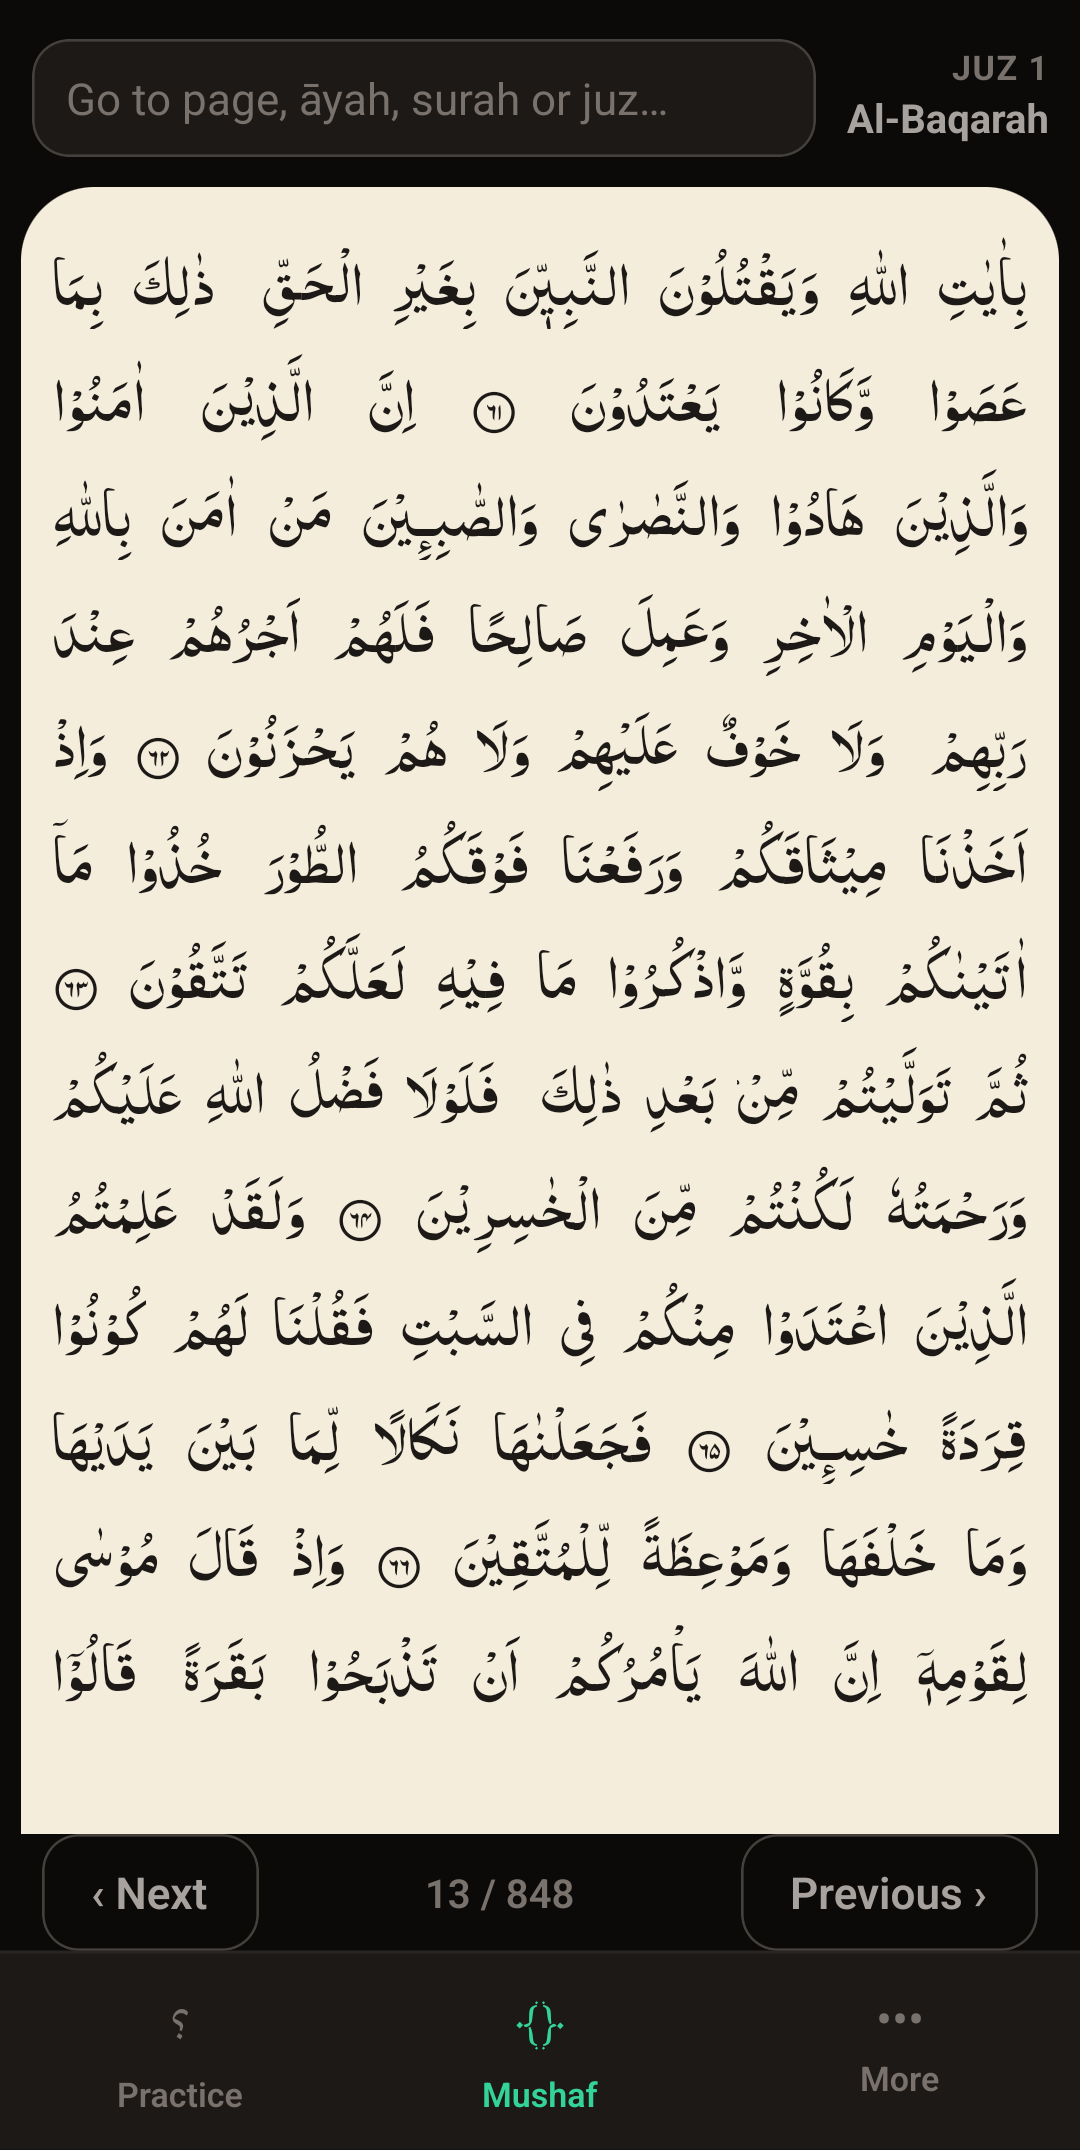 Go to page, āyah, surah or juz...
JUZ 1
Al-Baqarah
بِاٰيٰتِ اللّٰهِ وَيَقْتُلُوْنَ النَّبِيّٖنَ بِغَيْرِ الْحَقِّ ذٰلِكَ بِمَا
عَصَوْا وَّكَانُوْا يَعْتَدُوْنَ ۶۱ اِنَّ الَّذِيْنَ اٰمَنُوْا
وَالَّذِيْنَ هَادُوْا وَالنَّصٰرٰى وَالصّٰبِـِٕيْنَ مَنْ اٰمَنَ بِاللّٰهِ
وَالْيَوْمِ الْاٰخِرِ وَعَمِلَ صَالِحًا فَلَهُمْ اَجْرُهُمْ عِنْدَ
رَبِّهِمْ وَلَا خَوْفٌ عَلَيْهِمْ وَلَا هُمْ يَحْزَنُوْنَ ۶۲ وَاِذْ
اَخَذْنَا مِيْثَاقَكُمْ وَرَفَعْنَا فَوْقَكُمُ الطُّوْرَ خُذُوْا مَآ
اٰتَيْنٰكُمْ بِقُوَّةٍ وَّاذْكُرُوْا مَا فِيْهِ لَعَلَّكُمْ تَتَّقُوْنَ ۶۳
ثُمَّ تَوَلَّيْتُمْ مِّنْۢ بَعْدِ ذٰلِكَ فَلَوْلَا فَضْلُ اللّٰهِ عَلَيْكُمْ
وَرَحْمَتُهٗ لَكُنْتُمْ مِّنَ الْخٰسِرِيْنَ ۶۴ وَلَقَدْ عَلِمْتُمُ
الَّذِيْنَ اعْتَدَوْا مِنْكُمْ فِى السَّبْتِ فَقُلْنَا لَهُمْ كُوْنُوْا
قِرَدَةً خٰسِـِٕيْنَ ۶۵ فَجَعَلْنٰهَا نَكَالًا لِّمَا بَيْنَ يَدَيْهَا
وَمَا خَلْفَهَا وَمَوْعِظَةً لِّلْمُتَّقِيْنَ ۶۶ وَاِذْ قَالَ مُوْسٰى
لِقَوْمِهٖٓ اِنَّ اللّٰهَ يَاْمُرُكُمْ اَنْ تَذْبَحُوْا بَقَرَةً قَالُوْٓا
‹ Next
13 / 848
Previous ›
؟
Practice
Mushaf
More